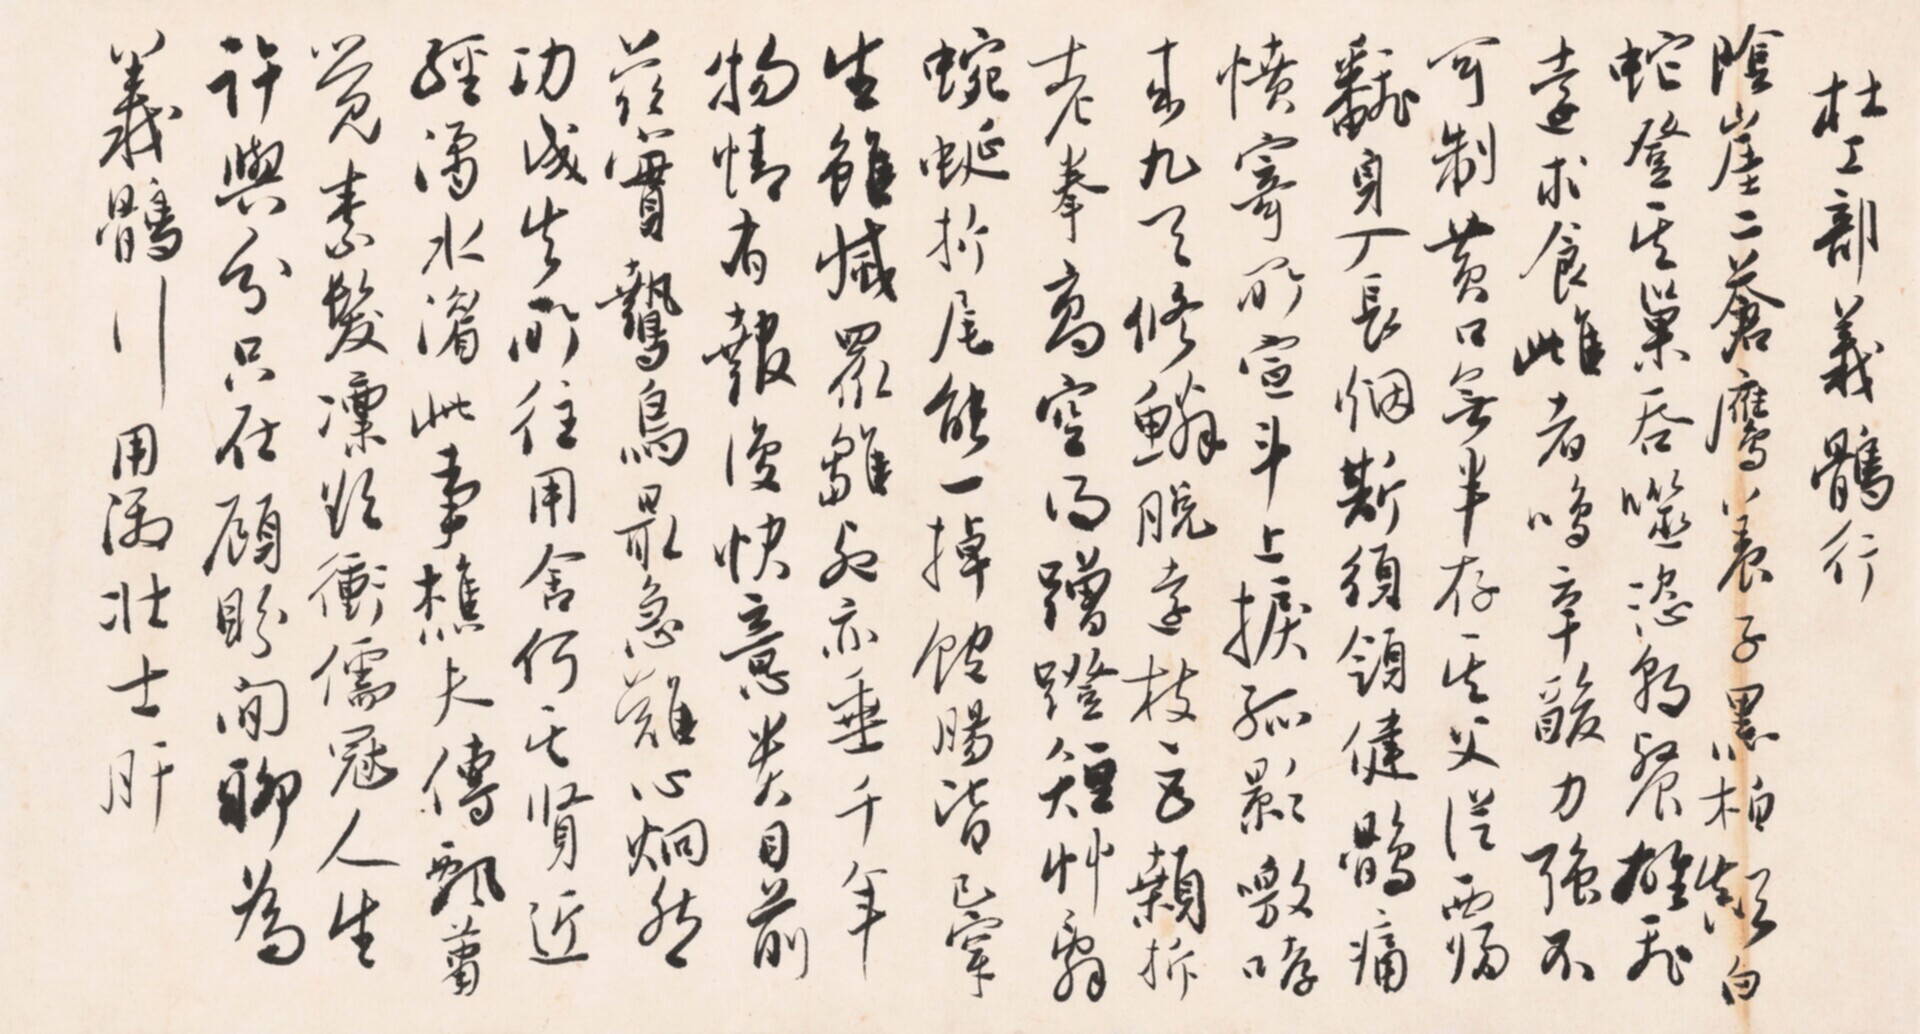 杜工部義鶻行
陰崖二蒼鷹養子黑柏顛白
蛇登其巢吞噬恣朝餐雄飛
遠求食雌者鳴辛酸力強不
可制黃口無半存其父從西歸
飜身入長烟斯須領健鶻痛
憤寄所宣斗上捩孤影噭哮
來九天修鱗脫遠枝巨顙拆
老拳高空得蹭蹬短艸辭
蜿蜒折尾能一掉飽腸皆已穿
生雖滅眾雛死亦垂千年
物情有報復快意貴目前
茲實鷙鳥最急難心炯然
功成失所往用舍何其賢近
經潏水湄此事樵夫傳飄蕭
覺素髮凜欲衝儒冠人生
許與分只在顧盼間聊為
義鶻行用激壯士肝